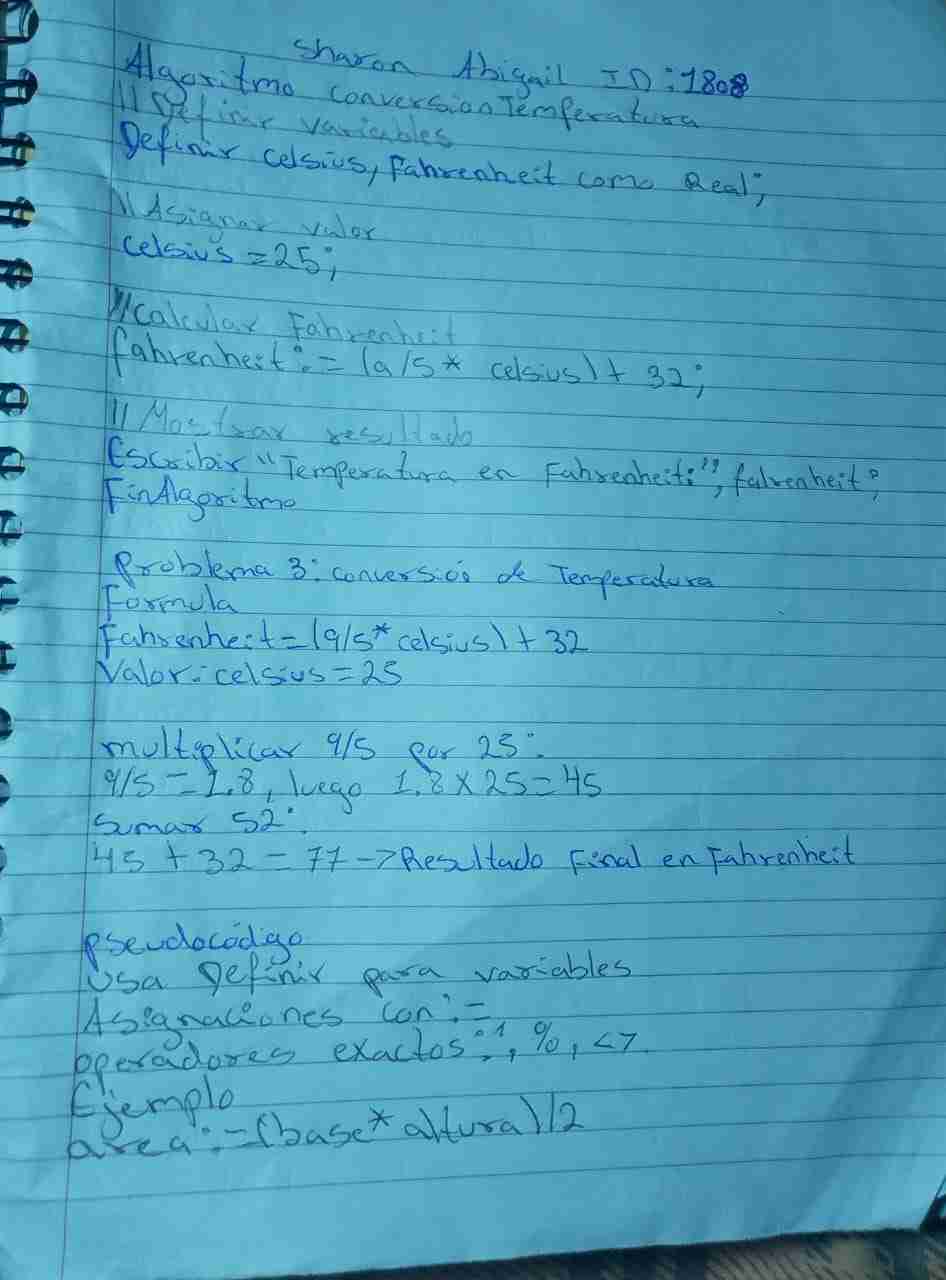 Sharon Abigail ID:1808
Algoritmo conversionTemperatura
// Definir variables
Definir celsius, fahrenheit como Real;
\\ Asignar valor
celsius = 25;
//calcular Fahrenheit
fahrenheit := (9/5* celsius) + 32;
// Mostrar resultado
Escribir "Temperatura en Fahrenheit:", fahrenheit;
FinAlgoritmo
Problema 3: conversión de Temperatura
Formula
Fahrenheit = (9/5* celsius) + 32
Valor: celsius = 25
multiplicar 9/5 por 25:
9/5 = 1.8, luego 1.8 x 25 = 45
Sumar 52:
45 + 32 = 77 -> Resultado final en Fahrenheit
Pseudocódigo
Usa Definir para variables
Asignaciones con :=
operadores exactos: %, <>
Ejemplo
area := (base * altura)/2